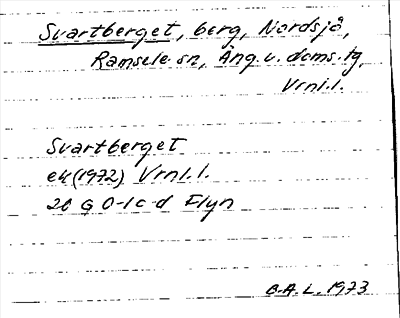 Svartberget, berg, Nordsjö,
Ramsele sn, Ång. v. doms. tg,
Vrnl.l.
Svartberget
ek (1972) Vrnl.l.
20 G 0-1 c-d Flyn
B.A.L. 1973